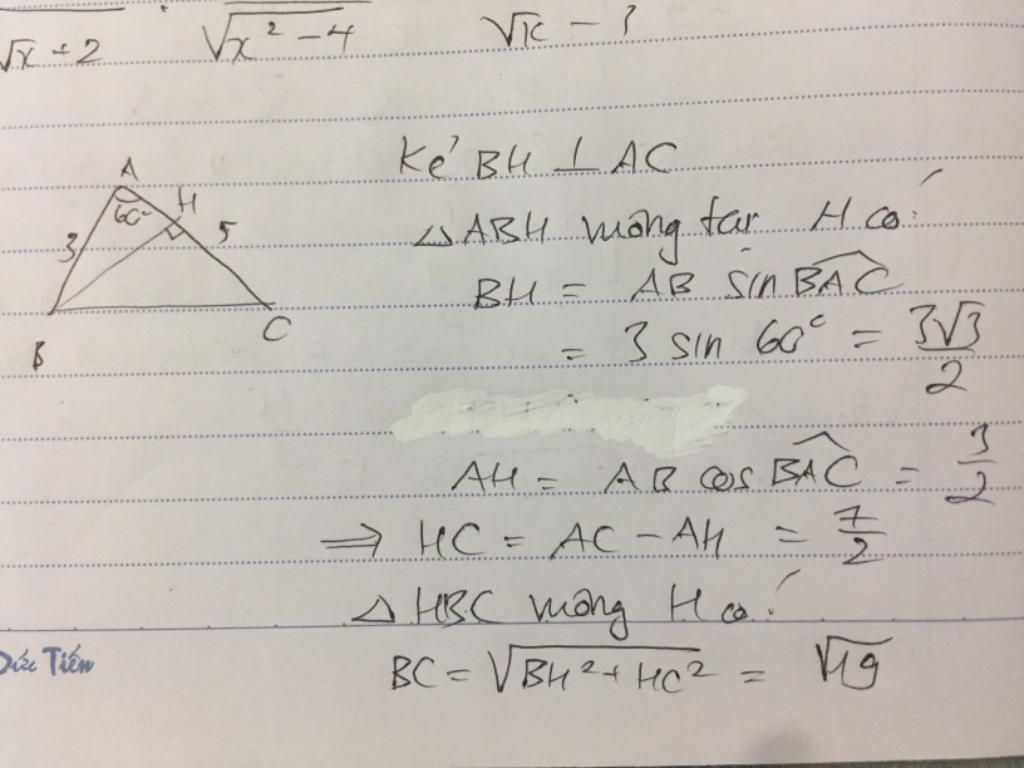 √x + 2 √x² - 4 √x - 3
A
60° H
3 5
B C
Kẻ BH ⊥ AC
△ABH vuông tại H có:
BH = AB sin BAC
= 3 sin 60° = 3√3/2
AH = AB cos BAC = 3/2
⇒ HC = AC - AH = 7/2
△HBC vuông H có:
BC = √BH² + HC² = √19
Đức Tiến